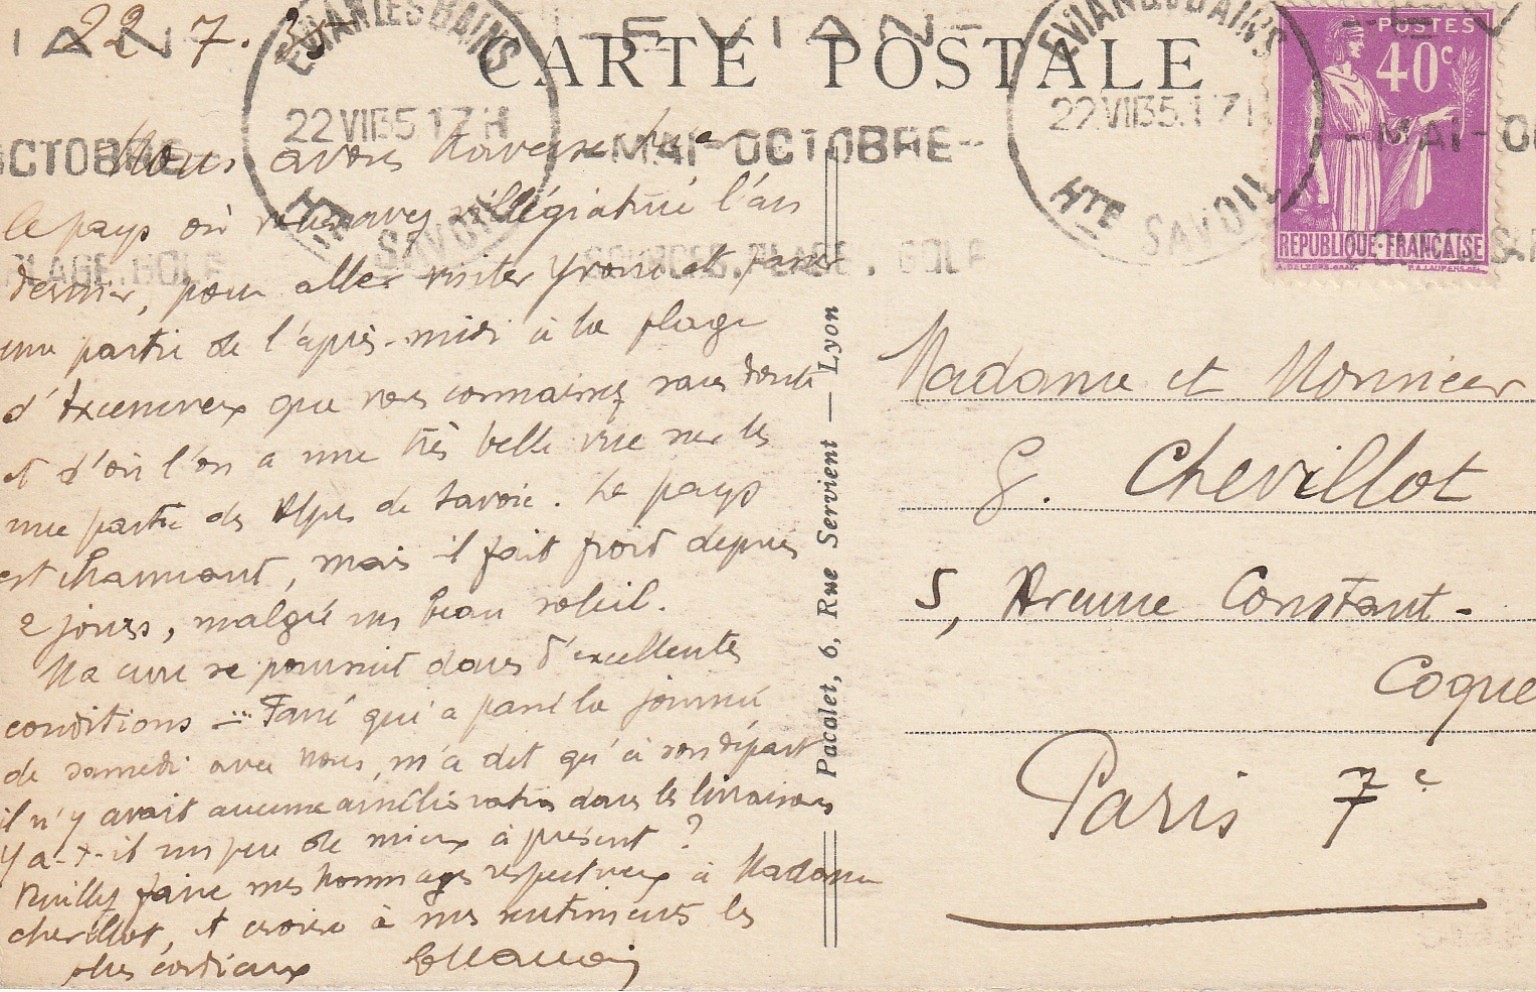 22.7.35
CARTE POSTALE
EVIAN LES BAINS
22 VII 35 17 H
HTE SAVOIE
EVIAN
MAI-OCTOBRE
SOURCES, PLAGE, GOLF
EVIAN LES BAINS
22 VII 35 17 H
HTE SAVOIE
POSTES
40c
REPUBLIQUE·FRANÇAISE
Nous avons traversé hier
le pays où vous avez villégiaturé l'an
dernier, pour aller visiter Yvoire et passer
une partie de l'après-midi à la plage
d'Excenevex que vous connaissez sans doute
et d'où l'on a une très belle vue sur les
une partie des Alpes de Savoie. Le pays
est charmant, mais il fait froid depuis
2 jours, malgré un beau soleil.
Ma cure se poursuit dans d'excellentes
conditions — qui a passé la journée
de samedi avec nous, m'a dit qu'à son départ
il n'y avait aucune amélioration dans les livraisons
Y a-t-il un peu de mieux à présent ?
Veuillez faire mes hommages respectueux à Madame
Chevillot, et croire à mes sentiments les
plus cordiaux
Pacalet, 6, Rue Servient — Lyon
Madame et Monsieur
G. Chevillot
5, Avenue Constant-
Coque
Paris 7e